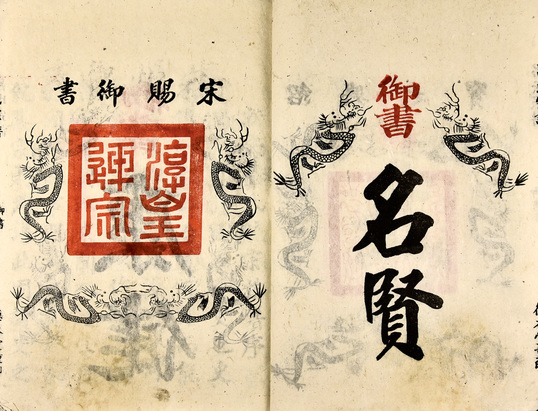 御書
名賢
宋賜御書
淳皇
宗